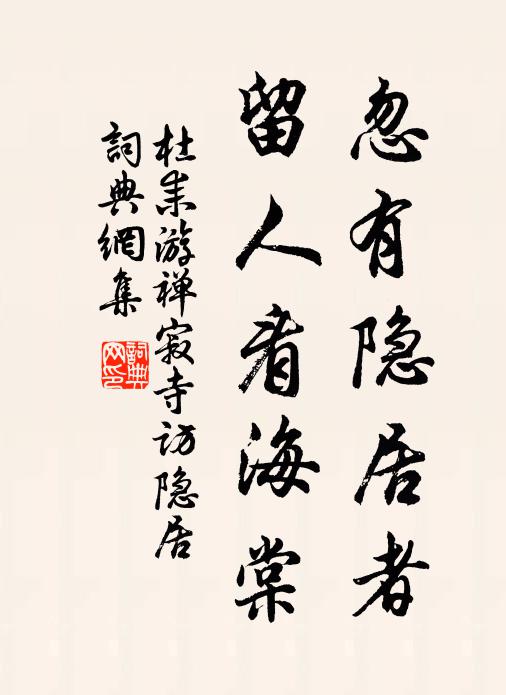 忽有隐居者
留人看海棠
杜耒游禅寂寺访隐居
詞典網集
詞典
网印